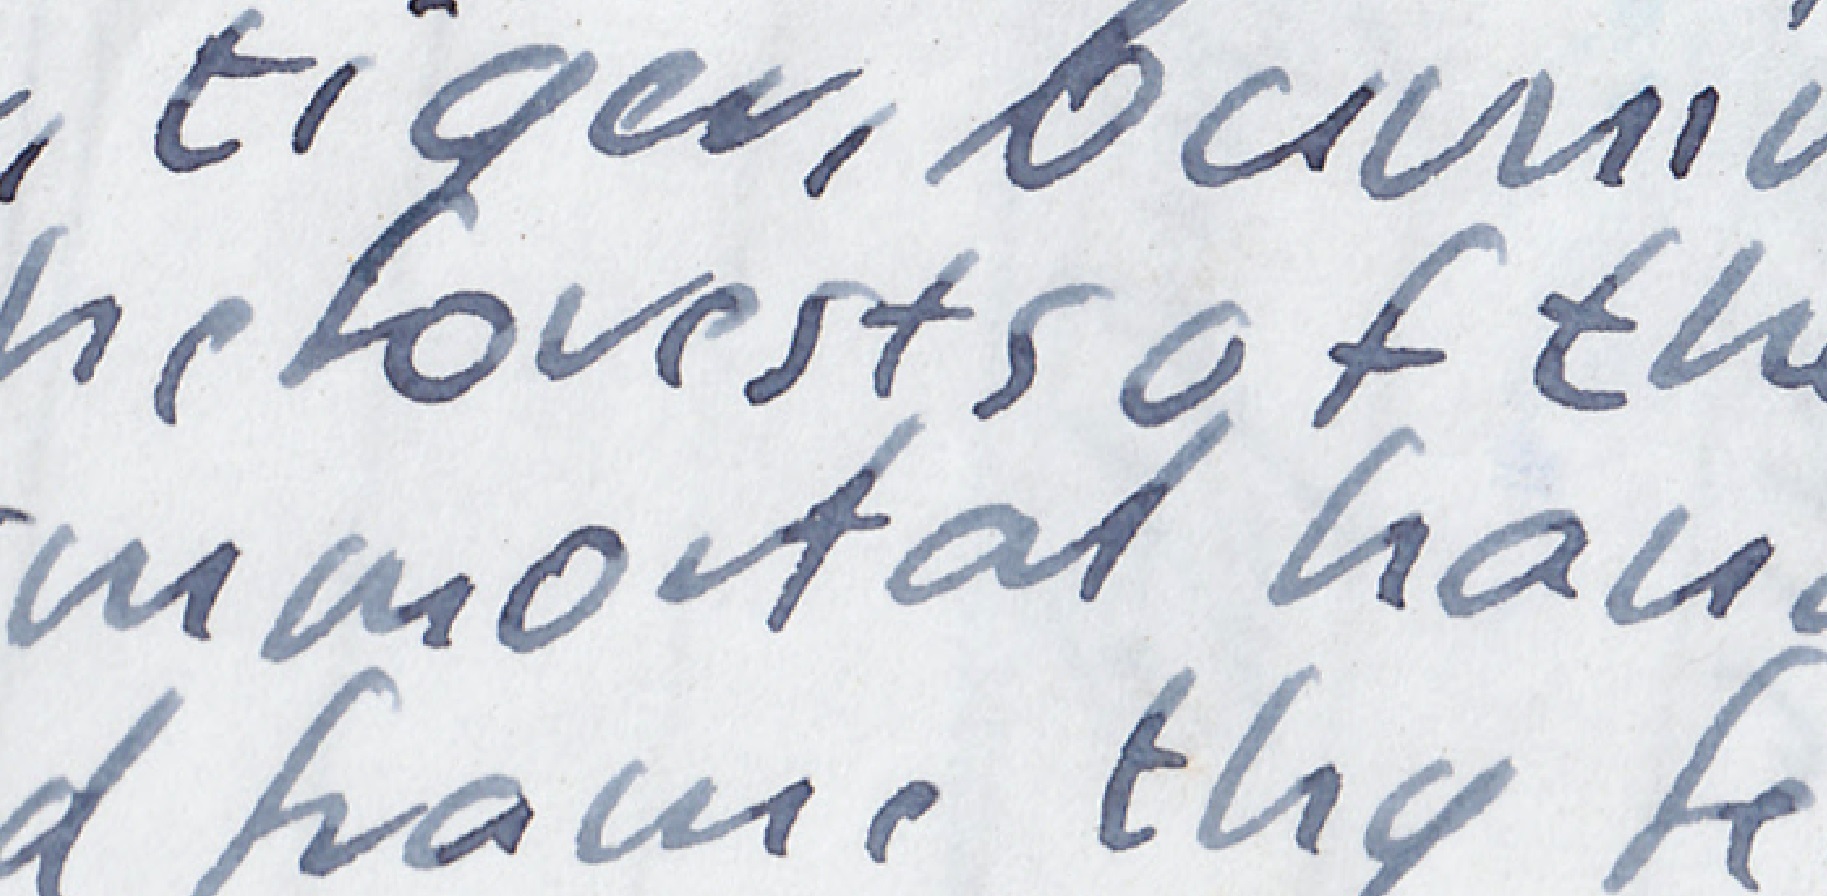 , tiger, burnin
he forests of the
mmortal hand
d frame thy fe